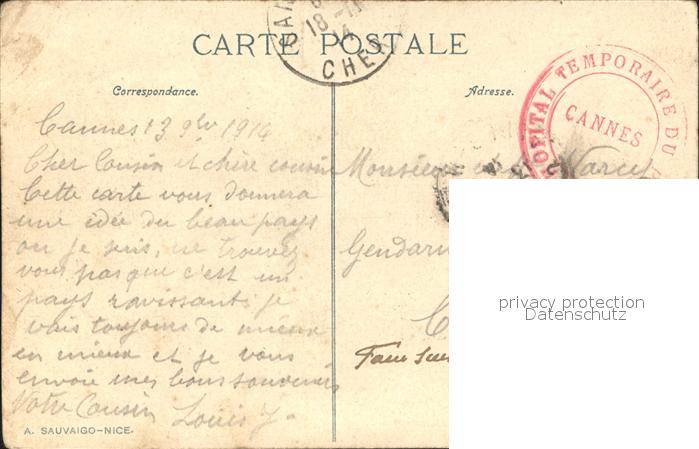 CARTE POSTALE
18 -11
14
CHER
HOPITAL TEMPORAIRE DU
CANNES
Correspondance.
Adresse.
Cannes 13 9bre 1914
Cher Cousin et chère cousine
Cette carte vous donnera
une idée du beau pays
ou je suis, ne trouvez
vous pas que c'est un
pays ravissant. je
vais toujours de mieux
en mieux et je vous
envoie mes bons souvenirs
Votre Cousin Louis J.
Monsieur et
Gendarm
privacy protection
Datenschutz
A. SAUVAIGO-NICE.